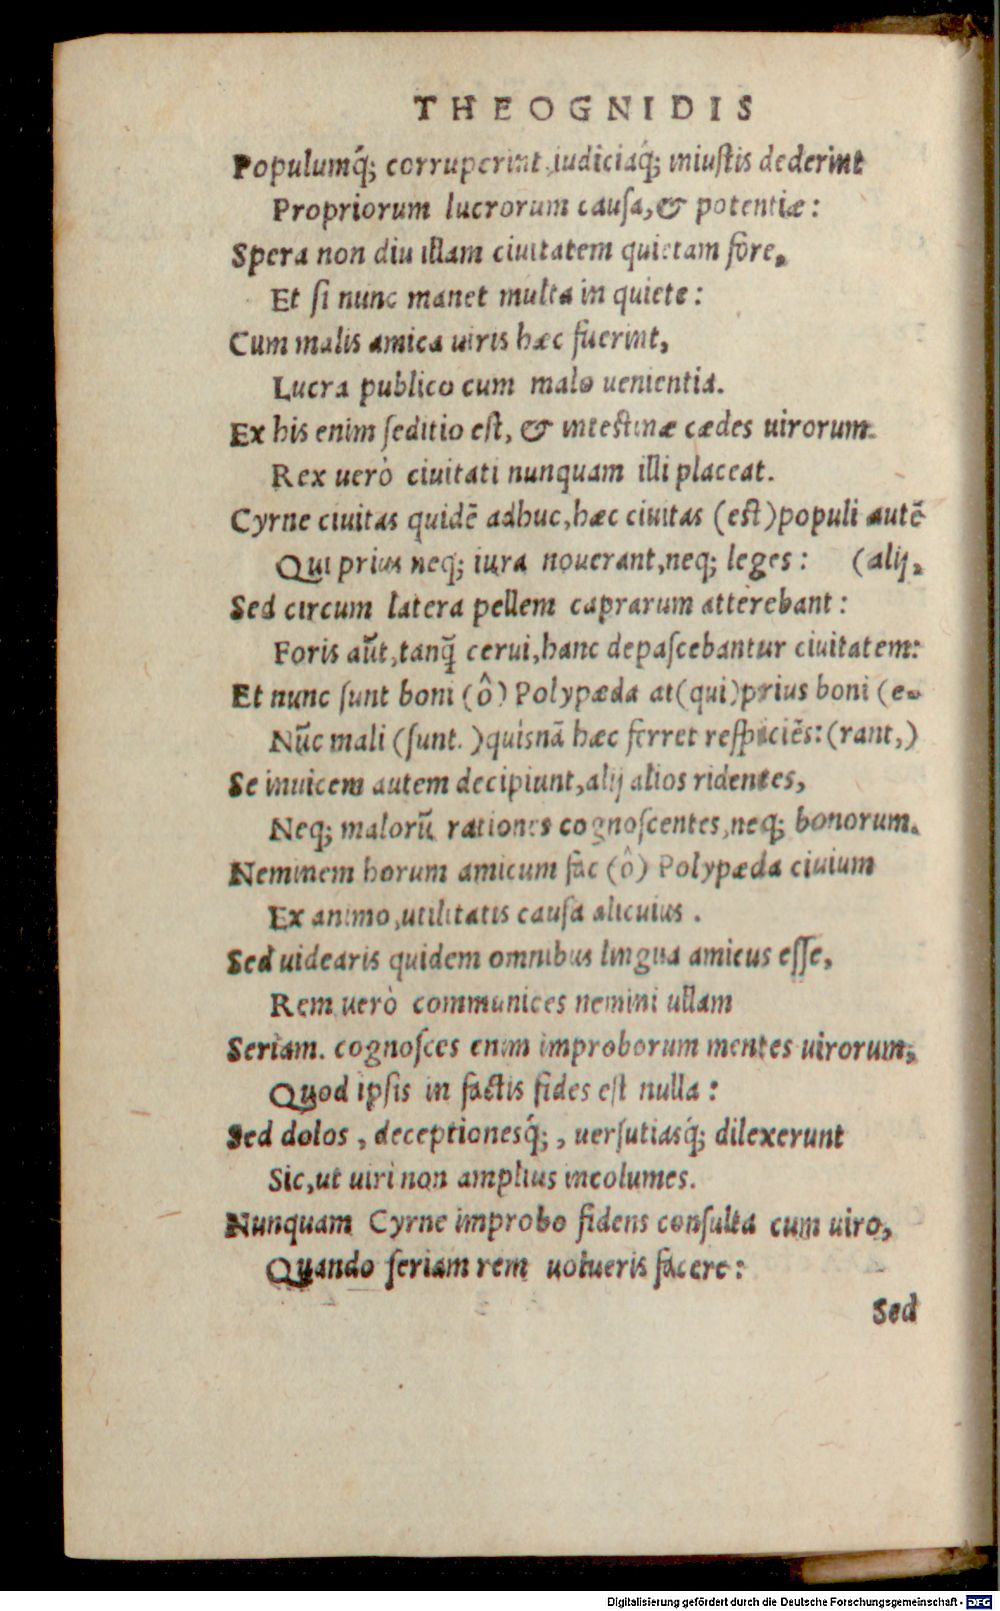 THEOGNIDIS
Populumq́; corruperint iudiciaq́; iniuſtis dederint
Propriorum lucrorum cauſa, & potentiæ:
Spera non diu illam ciuitatem quietam fore,
Et ſi nunc manet multa in quiete:
Cum malis amica uiris hæc fuerint,
Lucra publico cum malo uenientia.
Ex his enim ſeditio eſt, & inteſtinæ cædes uirorum.
Rex uerò ciuitati nunquam illi placeat.
Cyrne ciuitas quidē adhuc, hæc ciuitas (eſt) populi autē
Qui prius neq; iura nouerant, neq; leges: (alij,
Sed circum latera pellem caprarum atterebant:
Foris aūt, tanq̃ cerui, hanc depaſcebantur ciuitatem:
Et nunc ſunt boni (ô) Polypæda at (qui) prius boni (e-
Nūc mali (ſunt.) quisnā hæc ferret reſpiciēs: (rant,)
Se inuicem autem decipiunt, alij alios ridentes,
Neq; malorū rationes cognoſcentes, neq; bonorum.
Neminem horum amicum fac (ô) Polypæda ciuium
Ex animo, utilitatis cauſa alicuius.
Sed uidearis quidem omnibus lingua amicus eſſe,
Rem uerò communices nemini ullam
Seriam. cognoſces enim improborum mentes uirorum,
Quod ipſis in factis fides eſt nulla:
Sed dolos, deceptionesq́;, uerſutiasq́; dilexerunt
Sic, ut uiri non amplius incolumes.
Nunquam Cyrne improbo fidens conſulta cum uiro,
Quando ſeriam rem uolueris facere:
Sed
Digitalisierung gefördert durch die Deutsche Forschungsgemeinschaft - DFG